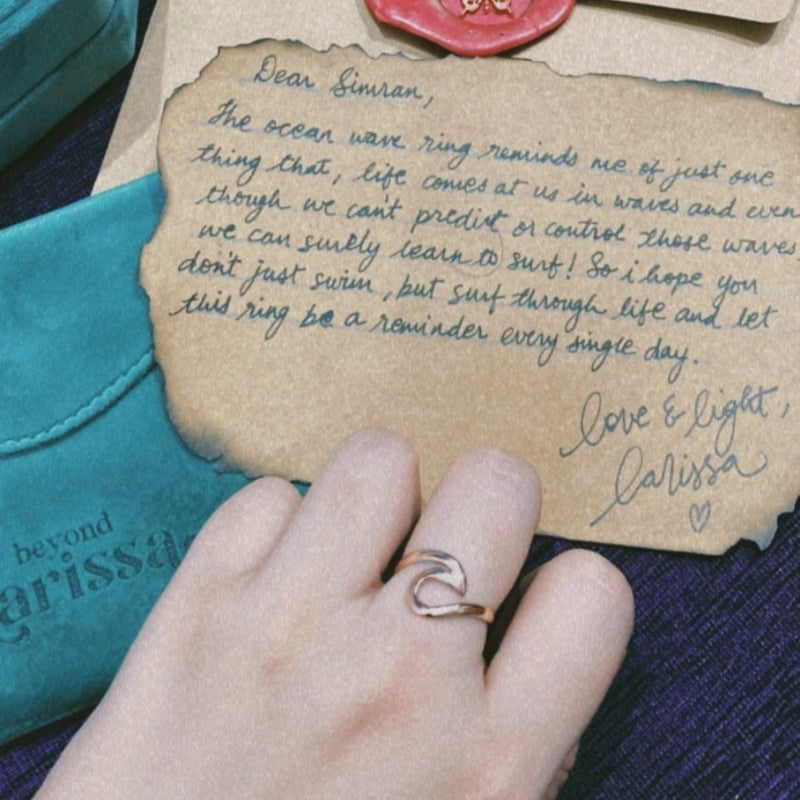 Dear Simran,
The ocean wave ring reminds me of just one
thing that, life comes at us in waves and even
though we can't predict or control those waves,
we can surely learn to surf! So i hope you
don't just swim, but surf through life and let
this ring be a reminder every single day.
love & light,
larissa
beyond
larissa